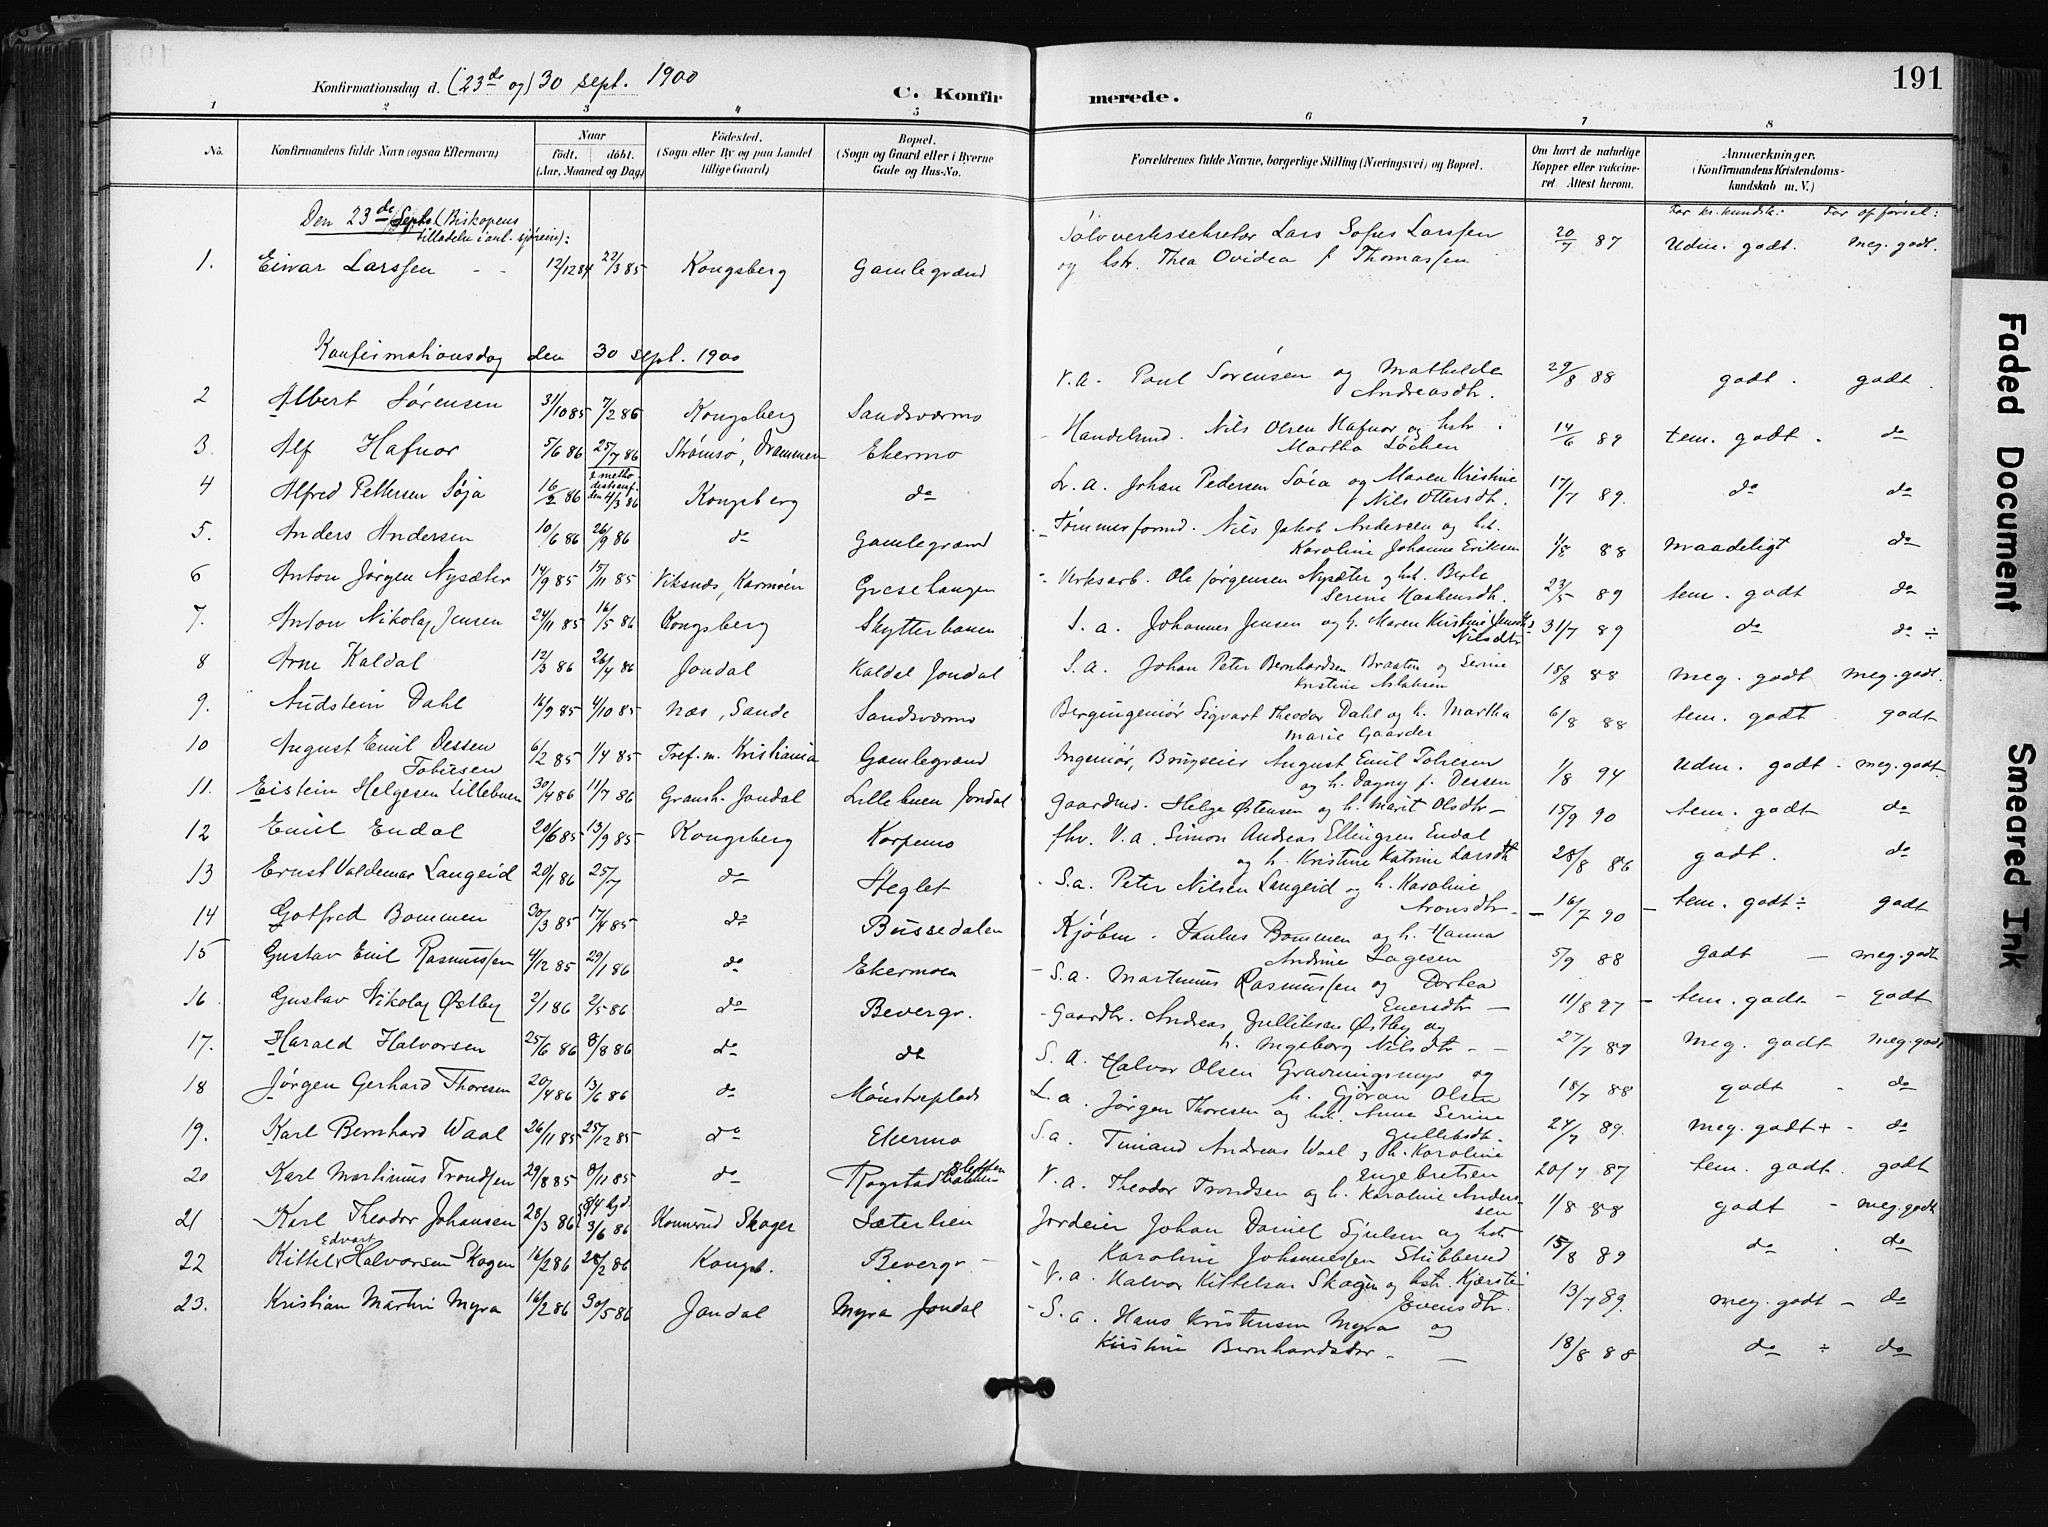 191
Konfirmationsdag d. (23de og) 30 sept. 1900
C. Konfirmerede.
1 2 3 4 5 6 7 8
No. Konfirmandens fulde Navn (ogsaa Efternavn) Naar født. døbt. (Aar, Maaned og Dag) Födested. (Sogn eller By og paa Landet tillige Gaard) Bopæl. (Sogn og Gaard eller i Byerne Gade og Hus-No. Forældrenes fulde Navne, borgerlige Stilling (Næringsvei) og Bopæl. Om havt de naturlige Kopper eller vakcineret Attest herom. Anmærkninger. (Konfirmandens Kristendomskundskab m. V.)
for kr. kundsk: for opførsel:
Den 23de Septbr (Biskopens tilladelse i anl. sjøreise):
1. Eivar Larssen - - 12/12 84 22/3 85 Kongsberg Gamlegrænd Sølvverkssekretær Lars Sofus Larssen og hstr. Thea Ovidea f Thomassen 20/7 87 Udm. godt. Meg. godt.
Konfirmationsdag den 30 sept. 1900
2 Albert Sørensen 31/10 85 7/2 86 Kongsberg Sandsværmo V.a. Poul Sørensen og Mathilde Andreasdtr. 29/8 88 godt. godt.
3. Alf Hafnor 5/6 86 25/7 86 Strømsø, Drammen Ekermo Handelsmd. Nils Olsen Hafnor og hstr. Martha Løchen 14/6 89 tem. godt. do
4 Alfred Pettersen Søja 16/2 86 4/3 86 Kongsberg do Lr. a. Johan Pedersen Søia og Maren Kristine f Nils Ottersdt. 17/7 89. do do
5. Anders Andersen 10/6 86 26/9 86 do Gamlegrænd Tømmerformd. Nils Jakob Andersen og hst. Karoline Johanne Eriksen 1/8 88 maadeligt do
6 Anton Jørgen Nysæter 14/9 85 15/11 85 Viksnæs, Karmøen Gresehaugen Verksarb. Ole Jørgensen Nysæter og hst. Berte Serine Haakensdt. 23/5 89 tem. godt do
7. Anton Nikolay Jensen 24/11 85 16/5 86 Kongsberg Skytterbanen S. a. Johannes Jensen og h. Maren Kristine Nilsdtr 31/7 89 do do ÷
8 Arne Kaldal 12/3 86 26/4 86 Jondal Kaldal Jondal S. a. Johan Peter Bernhardsen Braaten og Serine Kristine Aslaksen 18/8 88 meg. godt meg. godt.
9. Audstein Dahl 16/9 85 4/10 85 Næs, Sande Sandsværmo Bergingeniør Sigvart Theodor Dahl og h. Martha Marie Gaarder 6/8 88 tem. godt. godt
10 August Emil Dessen Tobiesen 6/2 85 1/4 85 Tref. m. Kristiania Gamlegrænd Ingeniør, Brugseier August Emil Tobiesen og h. Dagny f. Dessen 1/8 94 Udm. godt - meg. godt.
11. Eistein Helgesen Lillebuen 30/4 86 11/7 86 Gransh. Jondal Lillebuen Jondal Gaardmd. Helge Østensen og h. Marit Olsdtr - 15/9 90 tem. godt do
12 Emil Endal 20/6 85 13/9 85 Kongsberg Korpemo fhv. V. a. Simon Andreas Ellingsen Endal og h. Kristine Katrine Larsdt 28/8 86 godt. do
13 Ernst Valdemar Langeid 20/1 86 25/7 do Heglet S.a. Peter Nilsen Langeid og h. Karoline Aronsdtr - 16/7 90 - tem. godt ÷ godt
14 Gotfred Bommen 30/3 85 17/4 85 do Bussedalen Kjøbm. Paulus Bommen og h. Hanna Andrine Lagesen 5/9 88 godt - meg. godt
15 Gustav Emil Rasmussen 4/12 85 29/1 86 do Ekermoen S.a. Martinus Rasmussen og Dortea Enersdtr - 11/8 97 - tem. godt - godt
16 Gustav Nikolay Østby 2/1 86 2/5 86 do Bevergr. Gaardbr. Andreas Julliksen Østby og h. Ingeborg Nilsdtr - - 27/7 89 meg. godt meg. godt
17. Harald Halvorsen 25/6 86 8/8 86 do do S. a. Halvor Olsen Gravningsmyr og h. Gjøran Olsen 18/7 88 godt - do
18 Jørgen Gerhard Thoresen 20/4 86 13/6 86 do Mønstreplads L. a. Jørgen Thoresen og hst. Anne Serine Gulliksdt. 24/7 89. meg. godt + - do
19. Karl Bernhard Waal 26/11 85 25/12 85 do Ekermo S.a. Tinand Andreas Waal og h. Karoline Engebretsen 20/7 87 tem. godt. godt
20 Karl Martinus Trondsen 29/8 85 8/11 85 do Rogstad V. a. Theodor Trondsen og h. Karoline Andersen 1/8 88 godt - meg. godt
21 Karl Theodor Johansen 28/3 86 3/6 86 Konnerud Skoger Sæterlien Jordeier Johan Daniel Sjulsen og hst Karoline Johannessen Stubberud 15/8 89 do . do
22 Kittel Edvart Halvorsen Skogen 16/2 86 28/2 86 Kongsb. Bevergr - V.a. Halvor Kittelsen Skogen og hst. Kjersti Evensdtr. 13/7 89. meg. godt - do
23. Kristian Martin Myra 16/2 86 30/5 86 Jondal Myra Jondal S. a. Hans Kristensen Myra og Kristine Bernhardsdtr. - - 18/8 88 do ÷ do
Faded Document
Smeared Ink